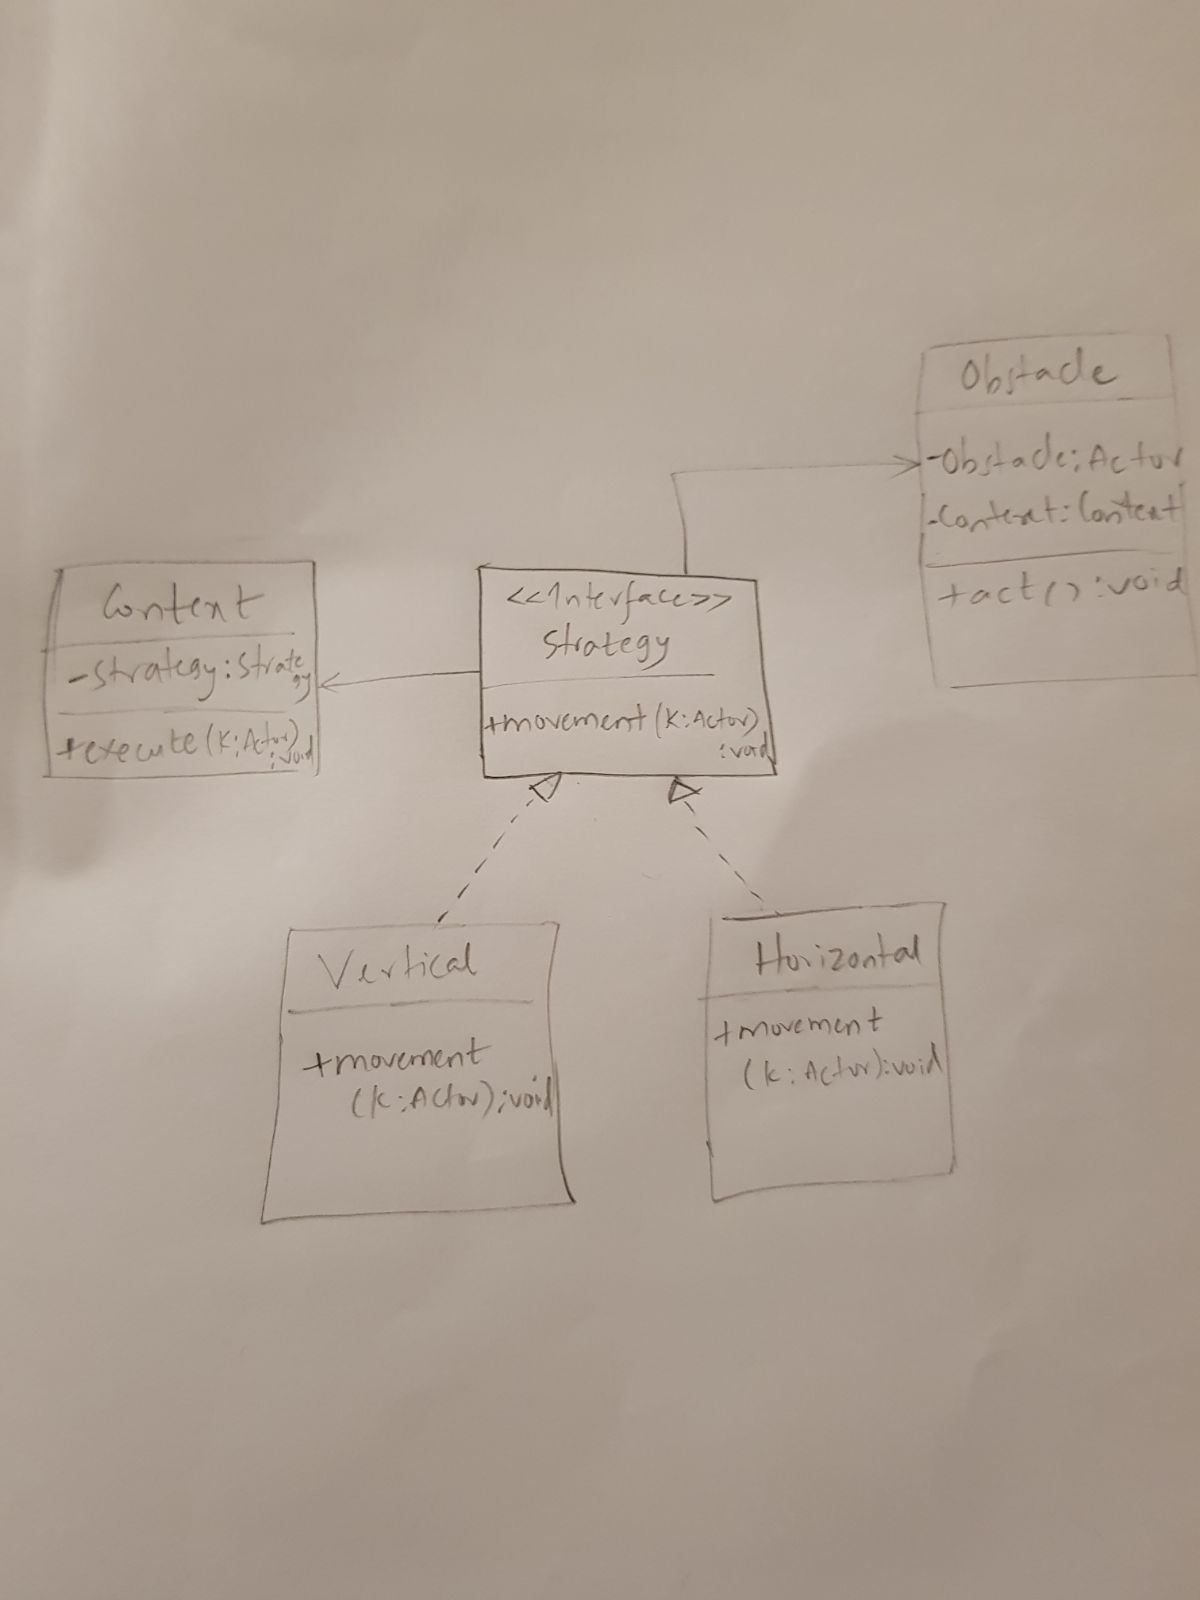 Obstacle
-Obstacle:Actor
-Context:Context
+act():void
Context
-Strategy:Strate
gy
+execute(K:Actor)
:void
<<Interface>>
Strategy
+movement(K:Actor)
:void
Vertical
+movement
(K:Actor):void
Horizontal
+movement
(K:Actor):void